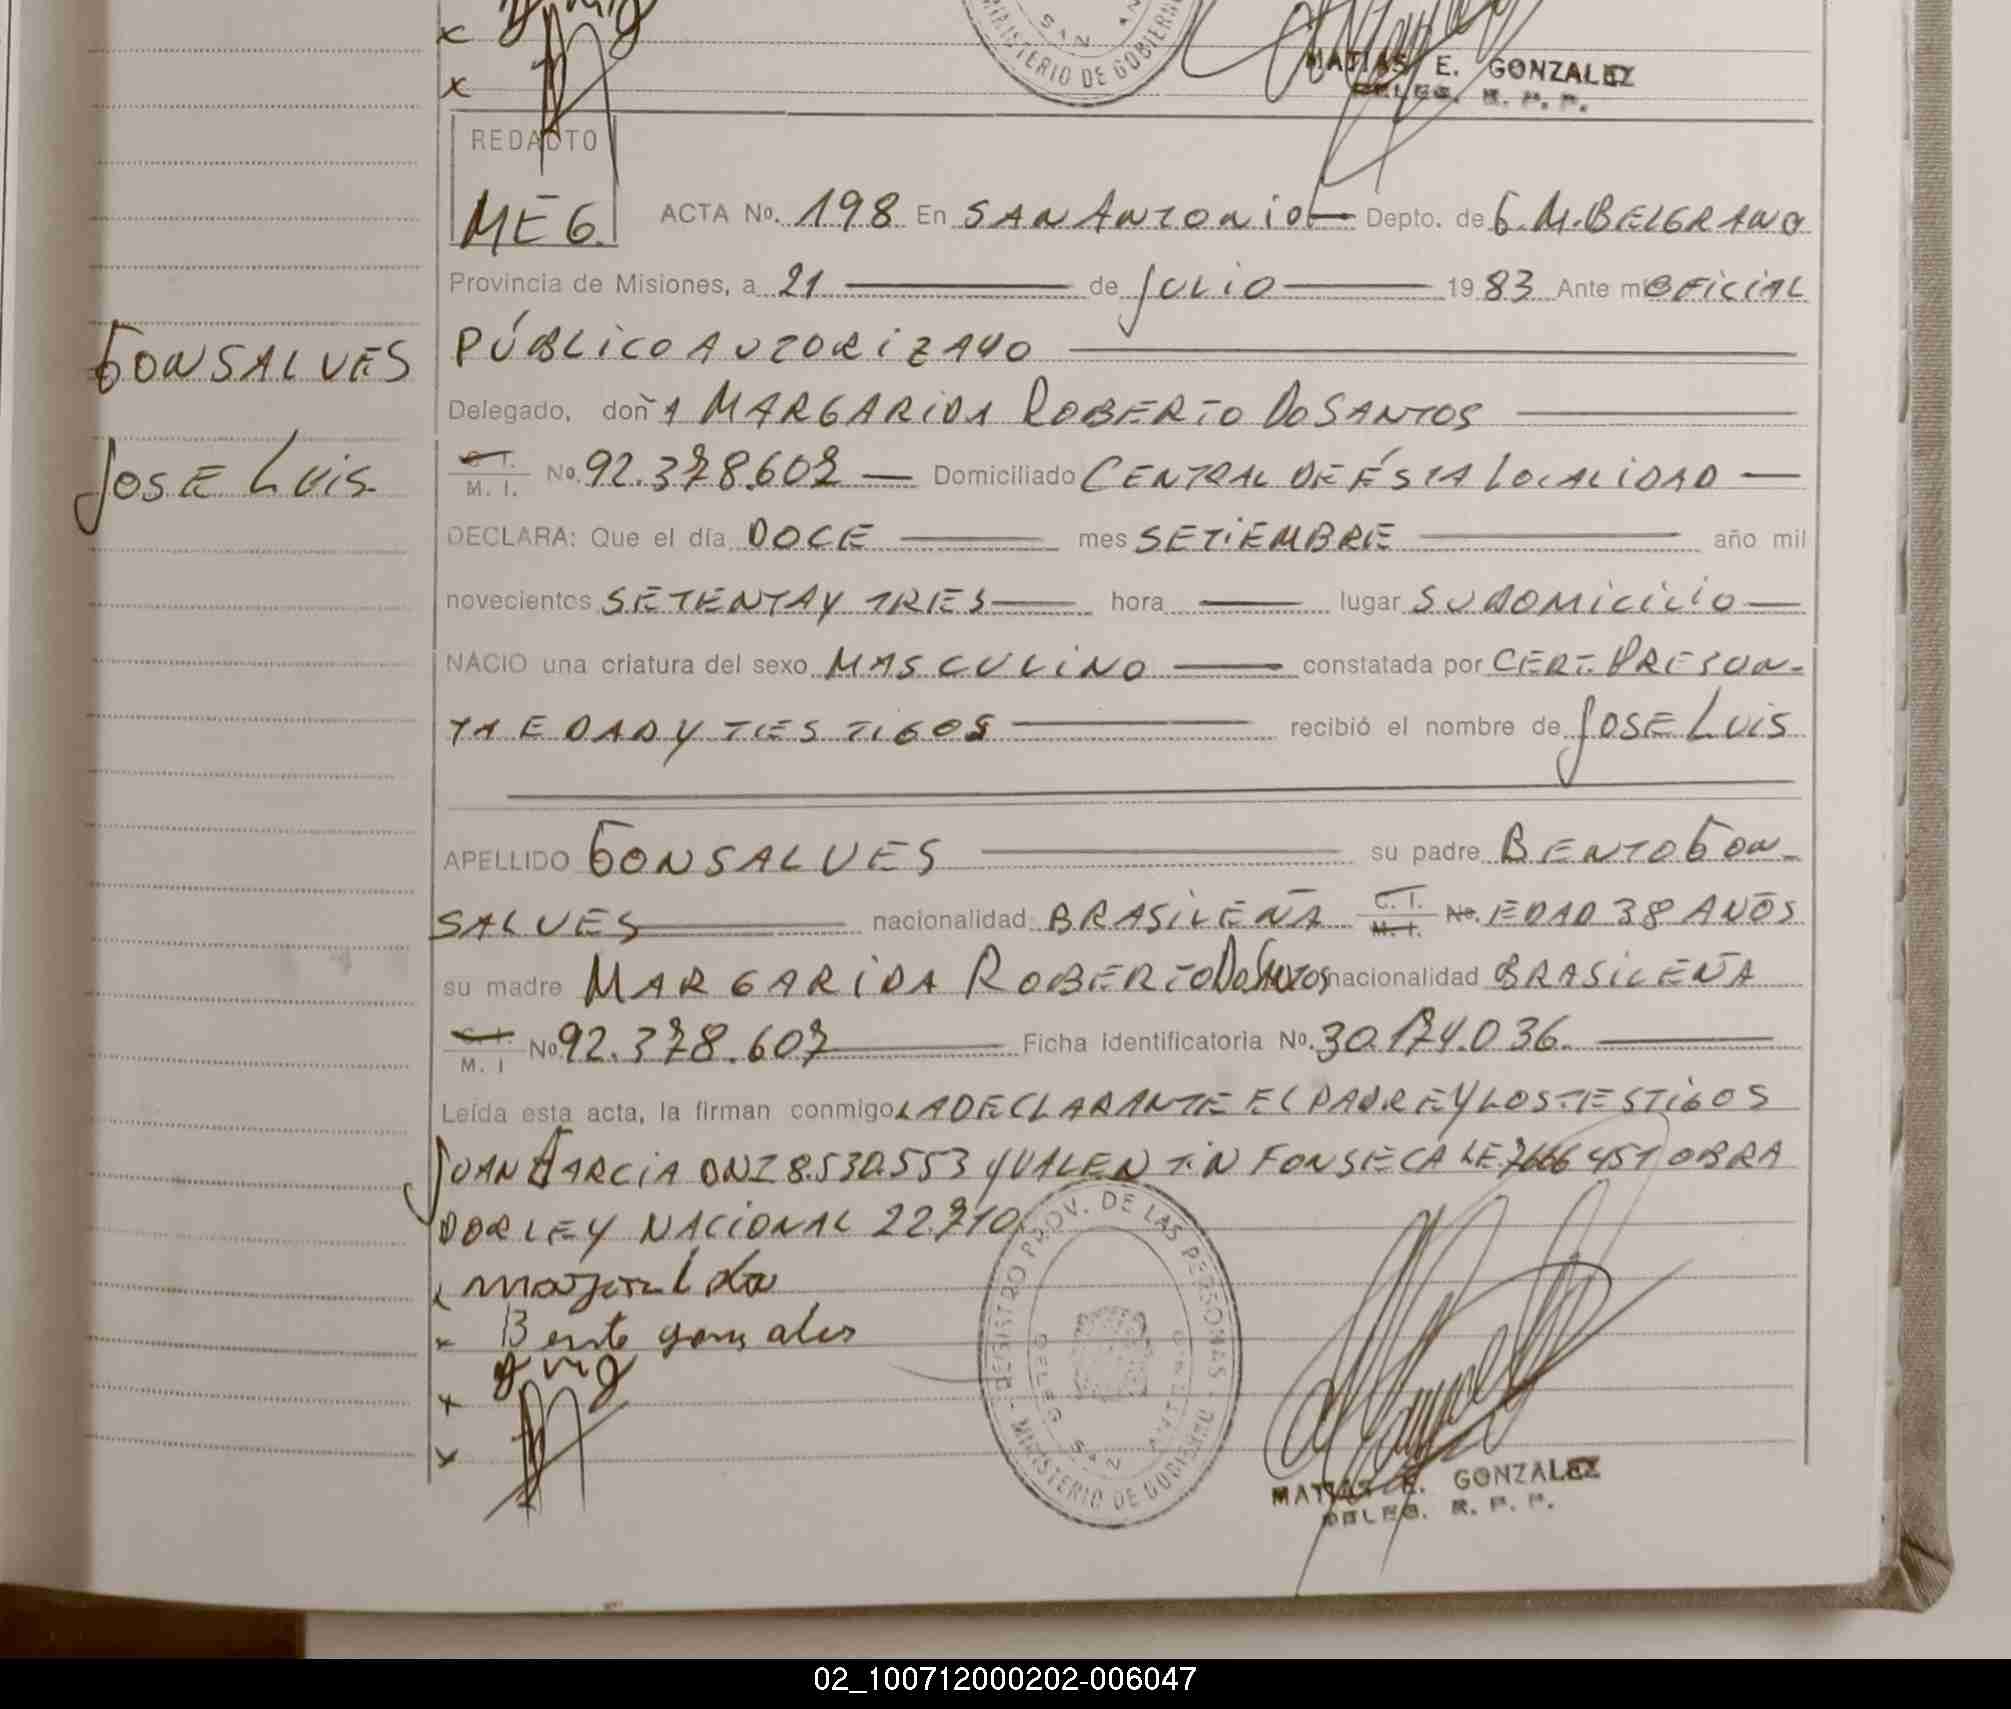 MINISTERIO DE GOBIERNO
SAN AN
MATIAS E. GONZALEZ
DELEG. R. P. P.
REDACTO
MEG.
ACTA No. 198 En SAN ANTONIO Depto. de G. M. BELGRANO
Provincia de Misiones, a 21 de JULIO 19 83 Ante mi OFICIAL
PÚBLICO AUTORIZADO
GONSALVES
Delegado, doñA MARGARIDA ROBERTO DOSANTOS
JOSE LUIS
C. I. M. I. No. 92.378.607 Domiciliado CENTRAL DE ÉSTA LOCALIDAD
DECLARA: Que el día DOCE mes SETIEMBRE año mil
novecientos SETENTA Y TRES hora lugar SU DOMICILIO
NACIO una criatura del sexo MASCULINO constatada por CERT. PRESUN-
TA EDAD Y TESTIGOS recibió el nombre de JOSE LUIS
APELLIDO GONSALVES su padre BENTO GON-
SALVES nacionalidad BRASILEÑA C. I. M. I. No. EDAD 38 AÑOS
su madre MARGARIDA ROBERTO DOSANTOS nacionalidad BRASILEÑA
C. I. M. I No 92.378.607 Ficha identificatoria No. 30.174.036.
Leída esta acta, la firman conmigo LA DECLARANTE EL PADRE Y LOS TESTIGOS
JUAN GARCIA DNI 8.530.553 Y VALENTIN FONSECA LE 7666451 OBRA
DOR LEY NACIONAL 22.710
x
x Bento gonsales
x
x
REGISTRO PROV. DE LAS PERSONAS
MINISTERIO DE GOBIERNO
DELEG. SAN ANTONIO
MATIAS E. GONZALEZ
DELEG. R. P. P.
02_100712000202-006047